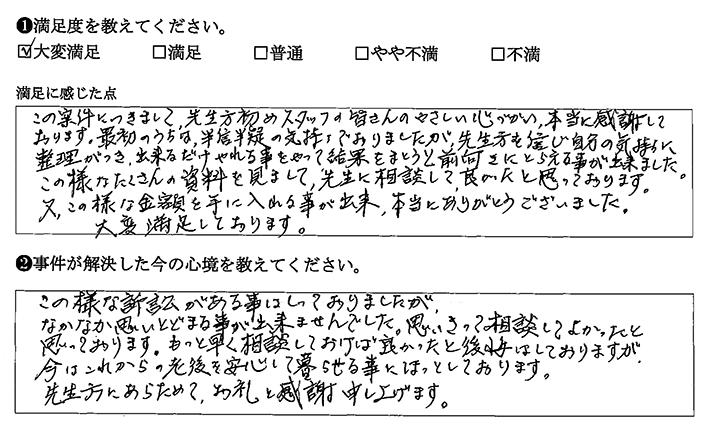 ❶満足度を教えてください。
☑大変満足 □満足 □普通 □やや不満 □不満
満足に感じた点
この案件につきまして、先生方初めスタッフの皆さんのやさしい心づかい、本当に感謝して
おります。最初のうちは、半信半疑の気持ちでありましたが、先生方を信じ自分の気持ちに
整理がつき、出来るだけやれる事をやって結果をまとうと前向きにとらえる事が出来ました。
この様なたくさんの資料を見まして、先生に相談して、良かったと思っております。
又、この様な金額を手に入れる事が出来、本当にありがとうございました。
大変満足しております。
❷事件が解決した今の心境を教えてください。
この様な訴訟がある事はしっておりましたが、
なかなか思いとどまる事が出来ませんでした。思いきって相談してよかったと
思っております。もっと早く相談しておけば良かったと後悔はしておりますが
今はこれからの老後を安心して暮らせる事にほっとしております。
先生方にあらためて、お礼と感謝申し上げます。